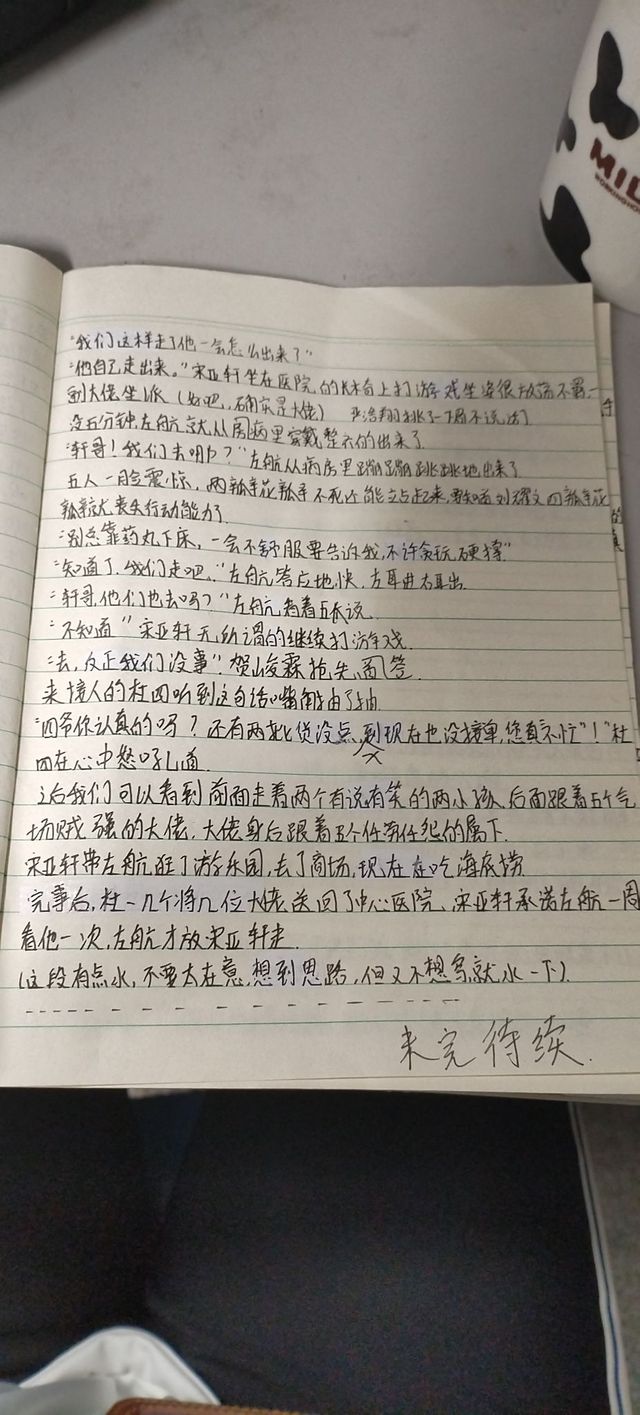 MIL
"我们这样走了他一会怎么出来了"
"他自己走出来。"宋亚轩坐在医院的长椅上打游戏坐姿很放荡不羁一
副大佬坐派（好吧,确实是大佬） 严浩翔挑了一下眉不说话
没五分钟,左航就从周病里穿戴整齐的出来了
"轩哥!我们去哪?"左航从病房里蹦蹦跳跳地出来了
五人一脸震惊,两瓢
瓢就丧失行动能力了
"别总靠药丸下床,一会不舒服要告诉我,不许贪玩硬撑"
"知道了,我们走吧。"左航答应地快,左耳进右耳出
"轩哥,他们也去吗?"左航指着五人说
"不知道"宋亚轩无所谓的继续打游戏
"去,反正我们没事"贺峻霖抢先回答
来接人的杜四听到这句话嘴角抽了抽
"四爷你认真的吗?还有两批货没点,到现在也没接单,您真不忙"!"杜
四在心中怒吼道
之后我们可以看到前面走着两个有说有笑的两小孩,后面跟着五个气
场贼强的大佬,大佬身后跟着五个任劳任怨的属下.
宋亚轩带左航逛了游乐园,去了商场,现在在吃海底捞
完事后,杜一几个将几位大佬送回了中心医院,宋亚轩承诺左航一周
看他一次,左航才放宋亚轩走.
(这段有点水,不要太在意,想到思路,但又不想写就水一下).
未完待续.